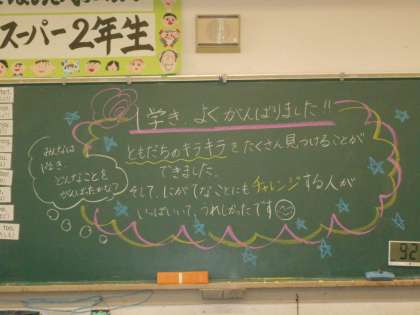 スーパー2年生
1学き、よくがんばりました!!
ともだちのキラキラをたくさん見つけることが
できました。
そして、にがてなことにもチャレンジする人が
いっぱいいて、うれしかったです
みんなは
1学き、
どんなことを
がんばったかな?
92